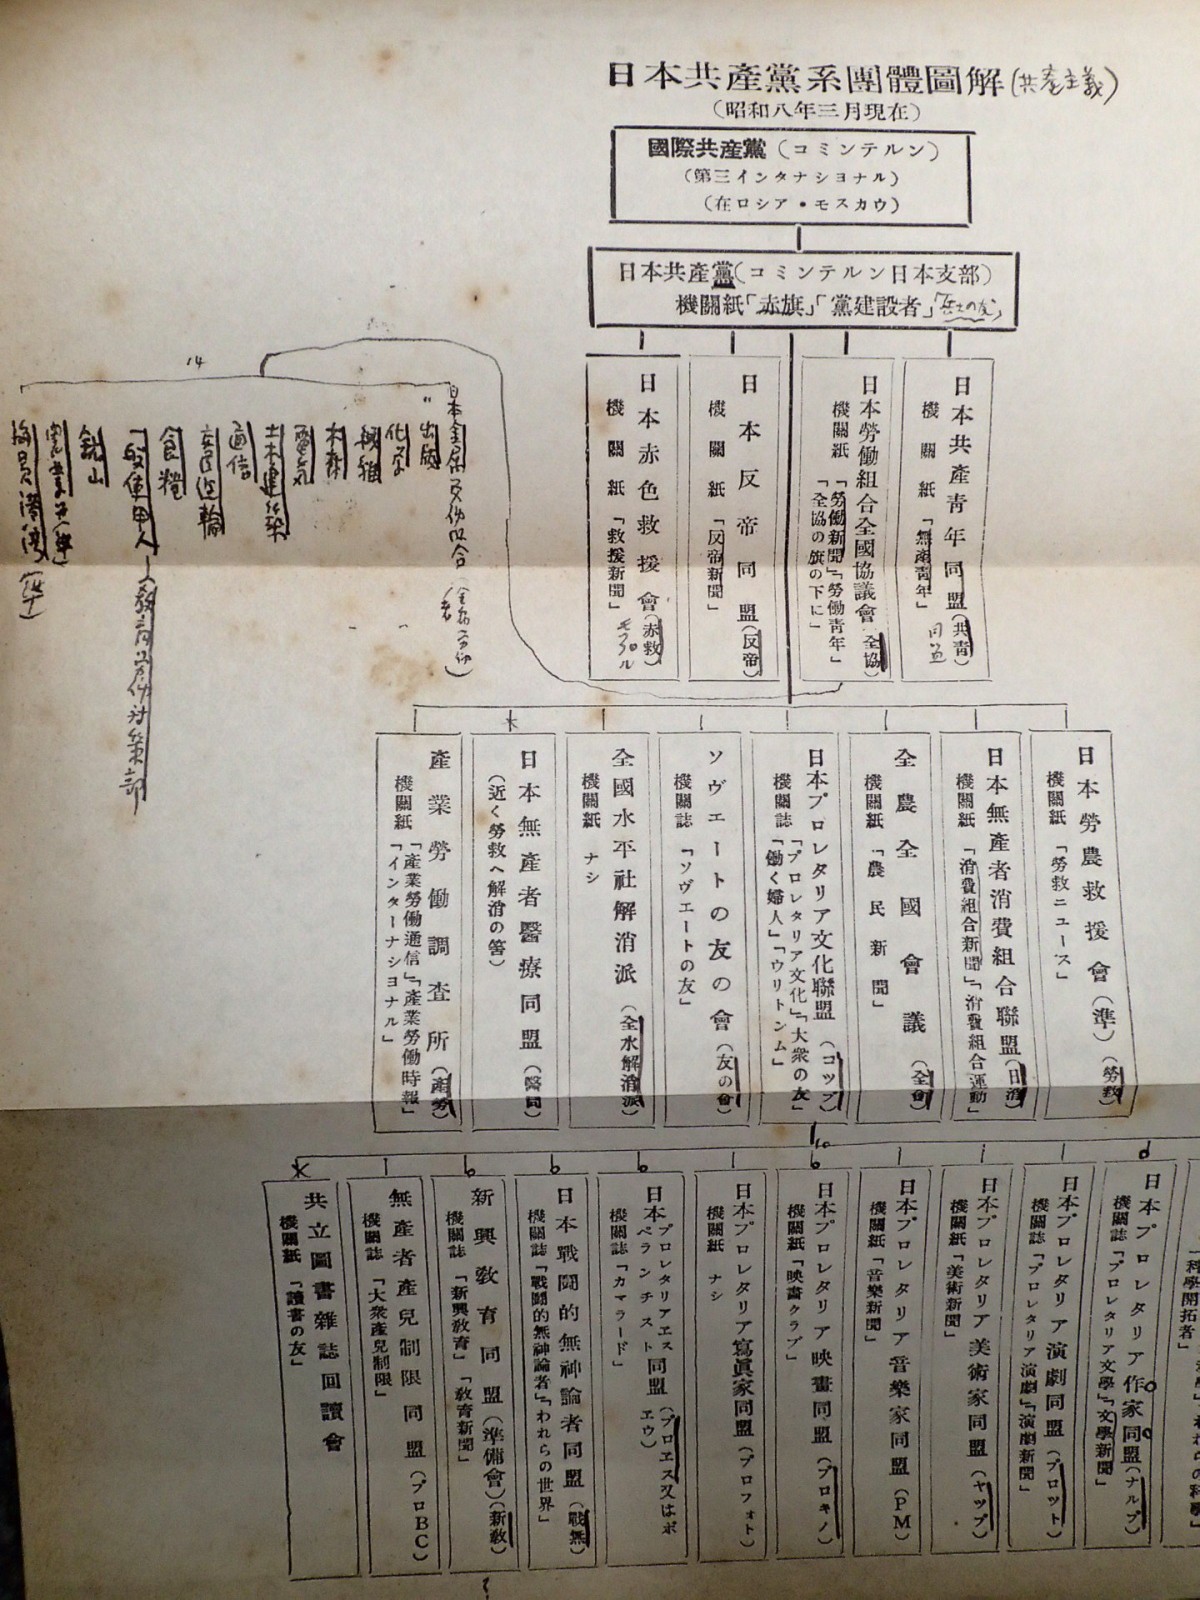 日本共產黨系團體圖解(共産主義)
(昭和八年三月現在)
國際共產黨(コミンテルン)
(第三インタナショナル)
(在ロシア・モスカウ)
日本共產黨(コミンテルン日本支部)
機關紙「赤旗」「黨建設者」「兵士の友」
日本共產青年同盟(共青)
機關紙「無產青年」
日本勞働組合全國協議會(全協)
機關紙「勞働新聞」「勞働青年」
「全協の旗の下に」
日本反帝同盟(反帝)
機關紙「反帝新聞」
日本赤色救援會(赤救)
機關紙「救援新聞」
モップル
14
出版
化学
木材
電気
土木建築
通信
交通運輸
食糧
一般使用人
鉱山
日本勞農救援會(準)(勞救)
機關紙「勞救ニュース」
日本無產者消費組合聯盟(日消)
機關紙「消費組合新聞」「消費組合運動」
全農全國會議(全會)
機關紙「農民新聞」
日本プロレタリア文化聯盟(コップ)
機關誌「プロレタリア文化」「大衆の友」
「働く婦人」「ウリトンム」
ソヴエートの友の會(友の會)
機關誌「ソヴエートの友」
全國水平社解消派(全水解消派)
機關紙 ナシ
日本無產者醫療同盟(醫同)
(近く勞救へ解消の筈)
產業勞働調查所(產勞)
機關紙「產業勞働通信」「產業勞働時報」
「インターナショナル」
10
「科學開拓者」
日本プロレタリア作家同盟(ナルプ)
機關誌「プロレタリア文學」「文學新聞」
日本プロレタリア演劇同盟(プロット)
機關誌「プロレタリア演劇」「演劇新聞」
日本プロレタリア美術家同盟(ヤップ)
機關紙「美術新聞」
日本プロレタリア音樂家同盟(PM)
機關紙「音樂新聞」
日本プロレタリア映畫同盟(プロキノ)
機關紙「映畫クラブ」
日本プロレタリア寫眞家同盟(プロフォト)
機關紙 ナシ
日本プロレタリアエスペランチスト同盟(プロエス又はポエウ)
機關誌「カマラード」
日本戰鬪的無神論者同盟(戰無)
機關誌「戰鬪的無神論者」「われらの世界」
新興敎育同盟(準備會)(新敎)
機關誌「新興敎育」「敎育新聞」
無產者產兒制限同盟(プロBC)
機關誌「大衆產兒制限」
共立圖書雜誌回讀會
機關紙「讀書の友」